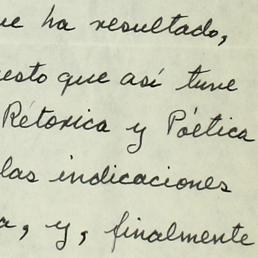 ue ha resultado,
esto que así tuve
Rétorica y Poética
las indicaciones
a, y, finalmente